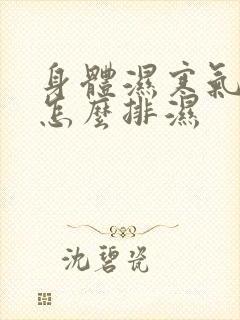 身體濕寒氣
怎麼排濕
沈碧瓷